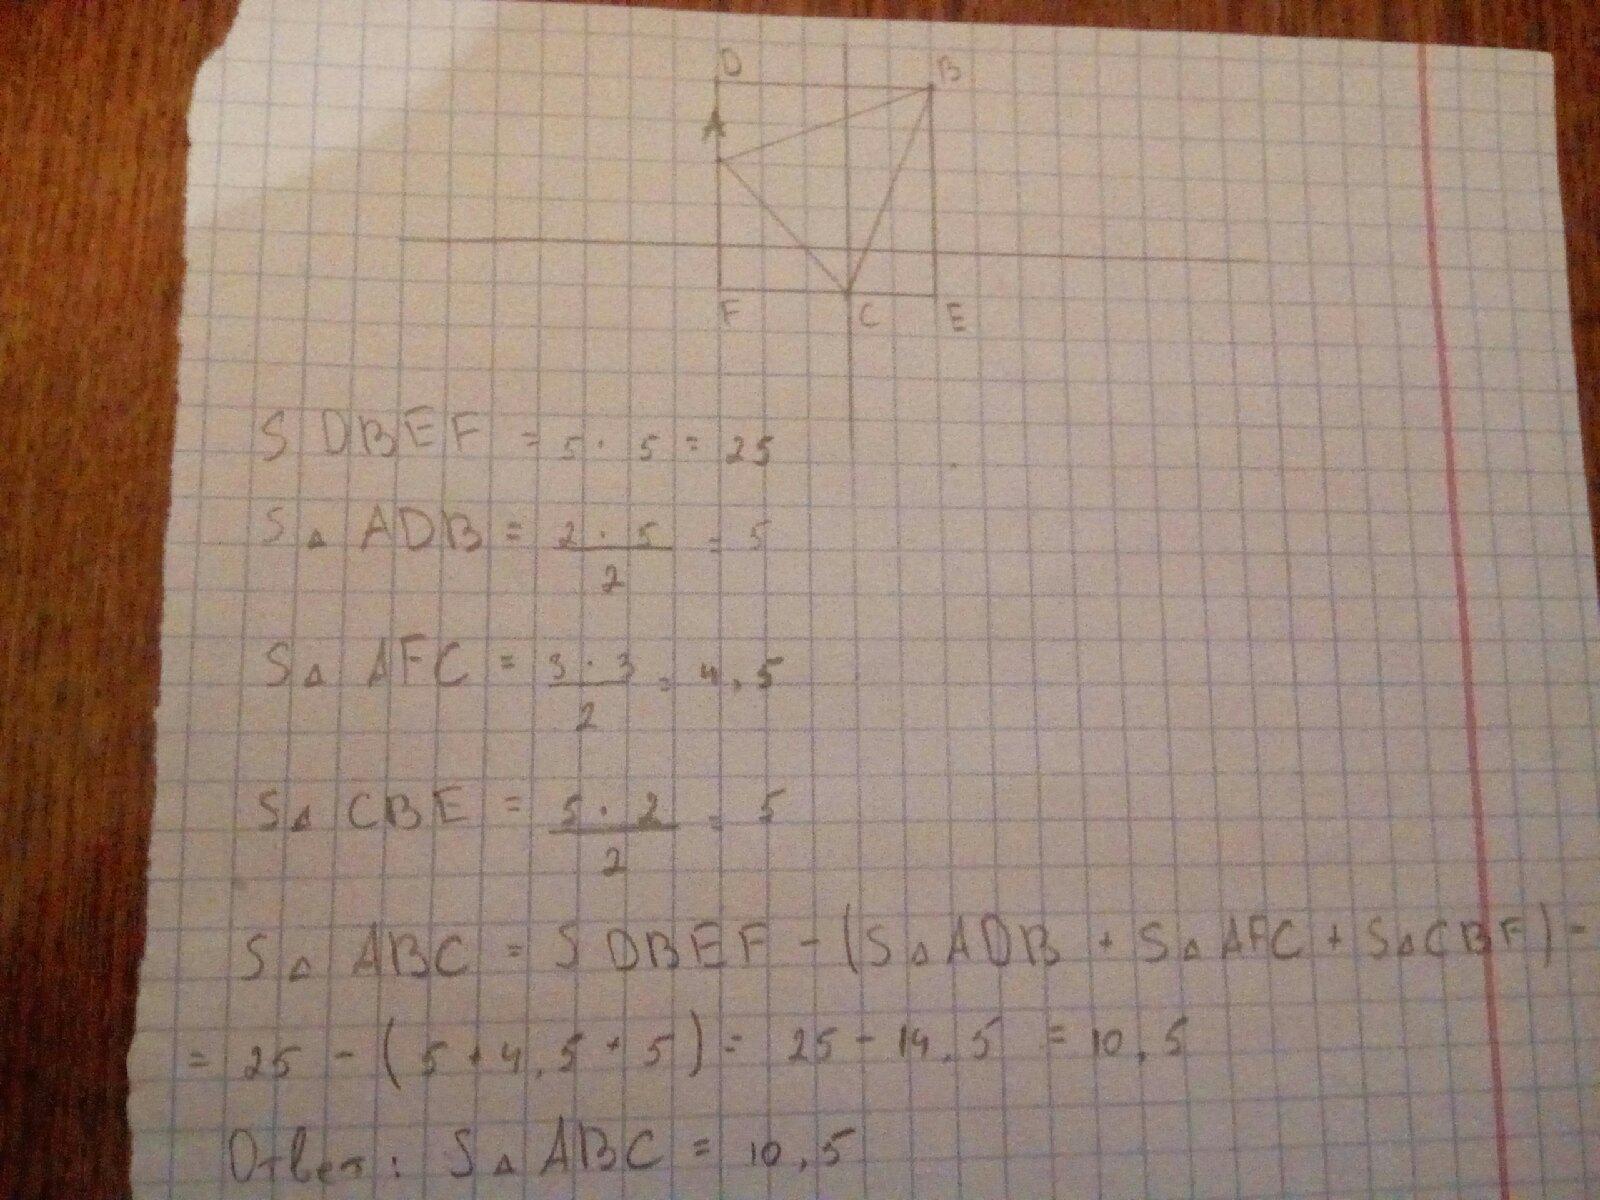 D B
A
F C E
S DBEF = 5 · 5 = 25
S△ ADB = 2 · 5 / 2 = 5
S△ AFC = 3 · 3 / 2 = 4,5
S△ CBE = 5 · 2 / 2 = 5
S△ ABC = S DBEF - (S△ADB + S△AFC + S△CBF) =
= 25 - (5+4,5+5) = 25 - 14,5 = 10,5
Ответ: S△ ABC = 10,5